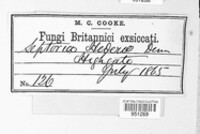 M. C. COOKE.
Fungi Britannici exsiccati.
Septoria Hederæ Desm
Highgate
July 1865
No. 126
951269